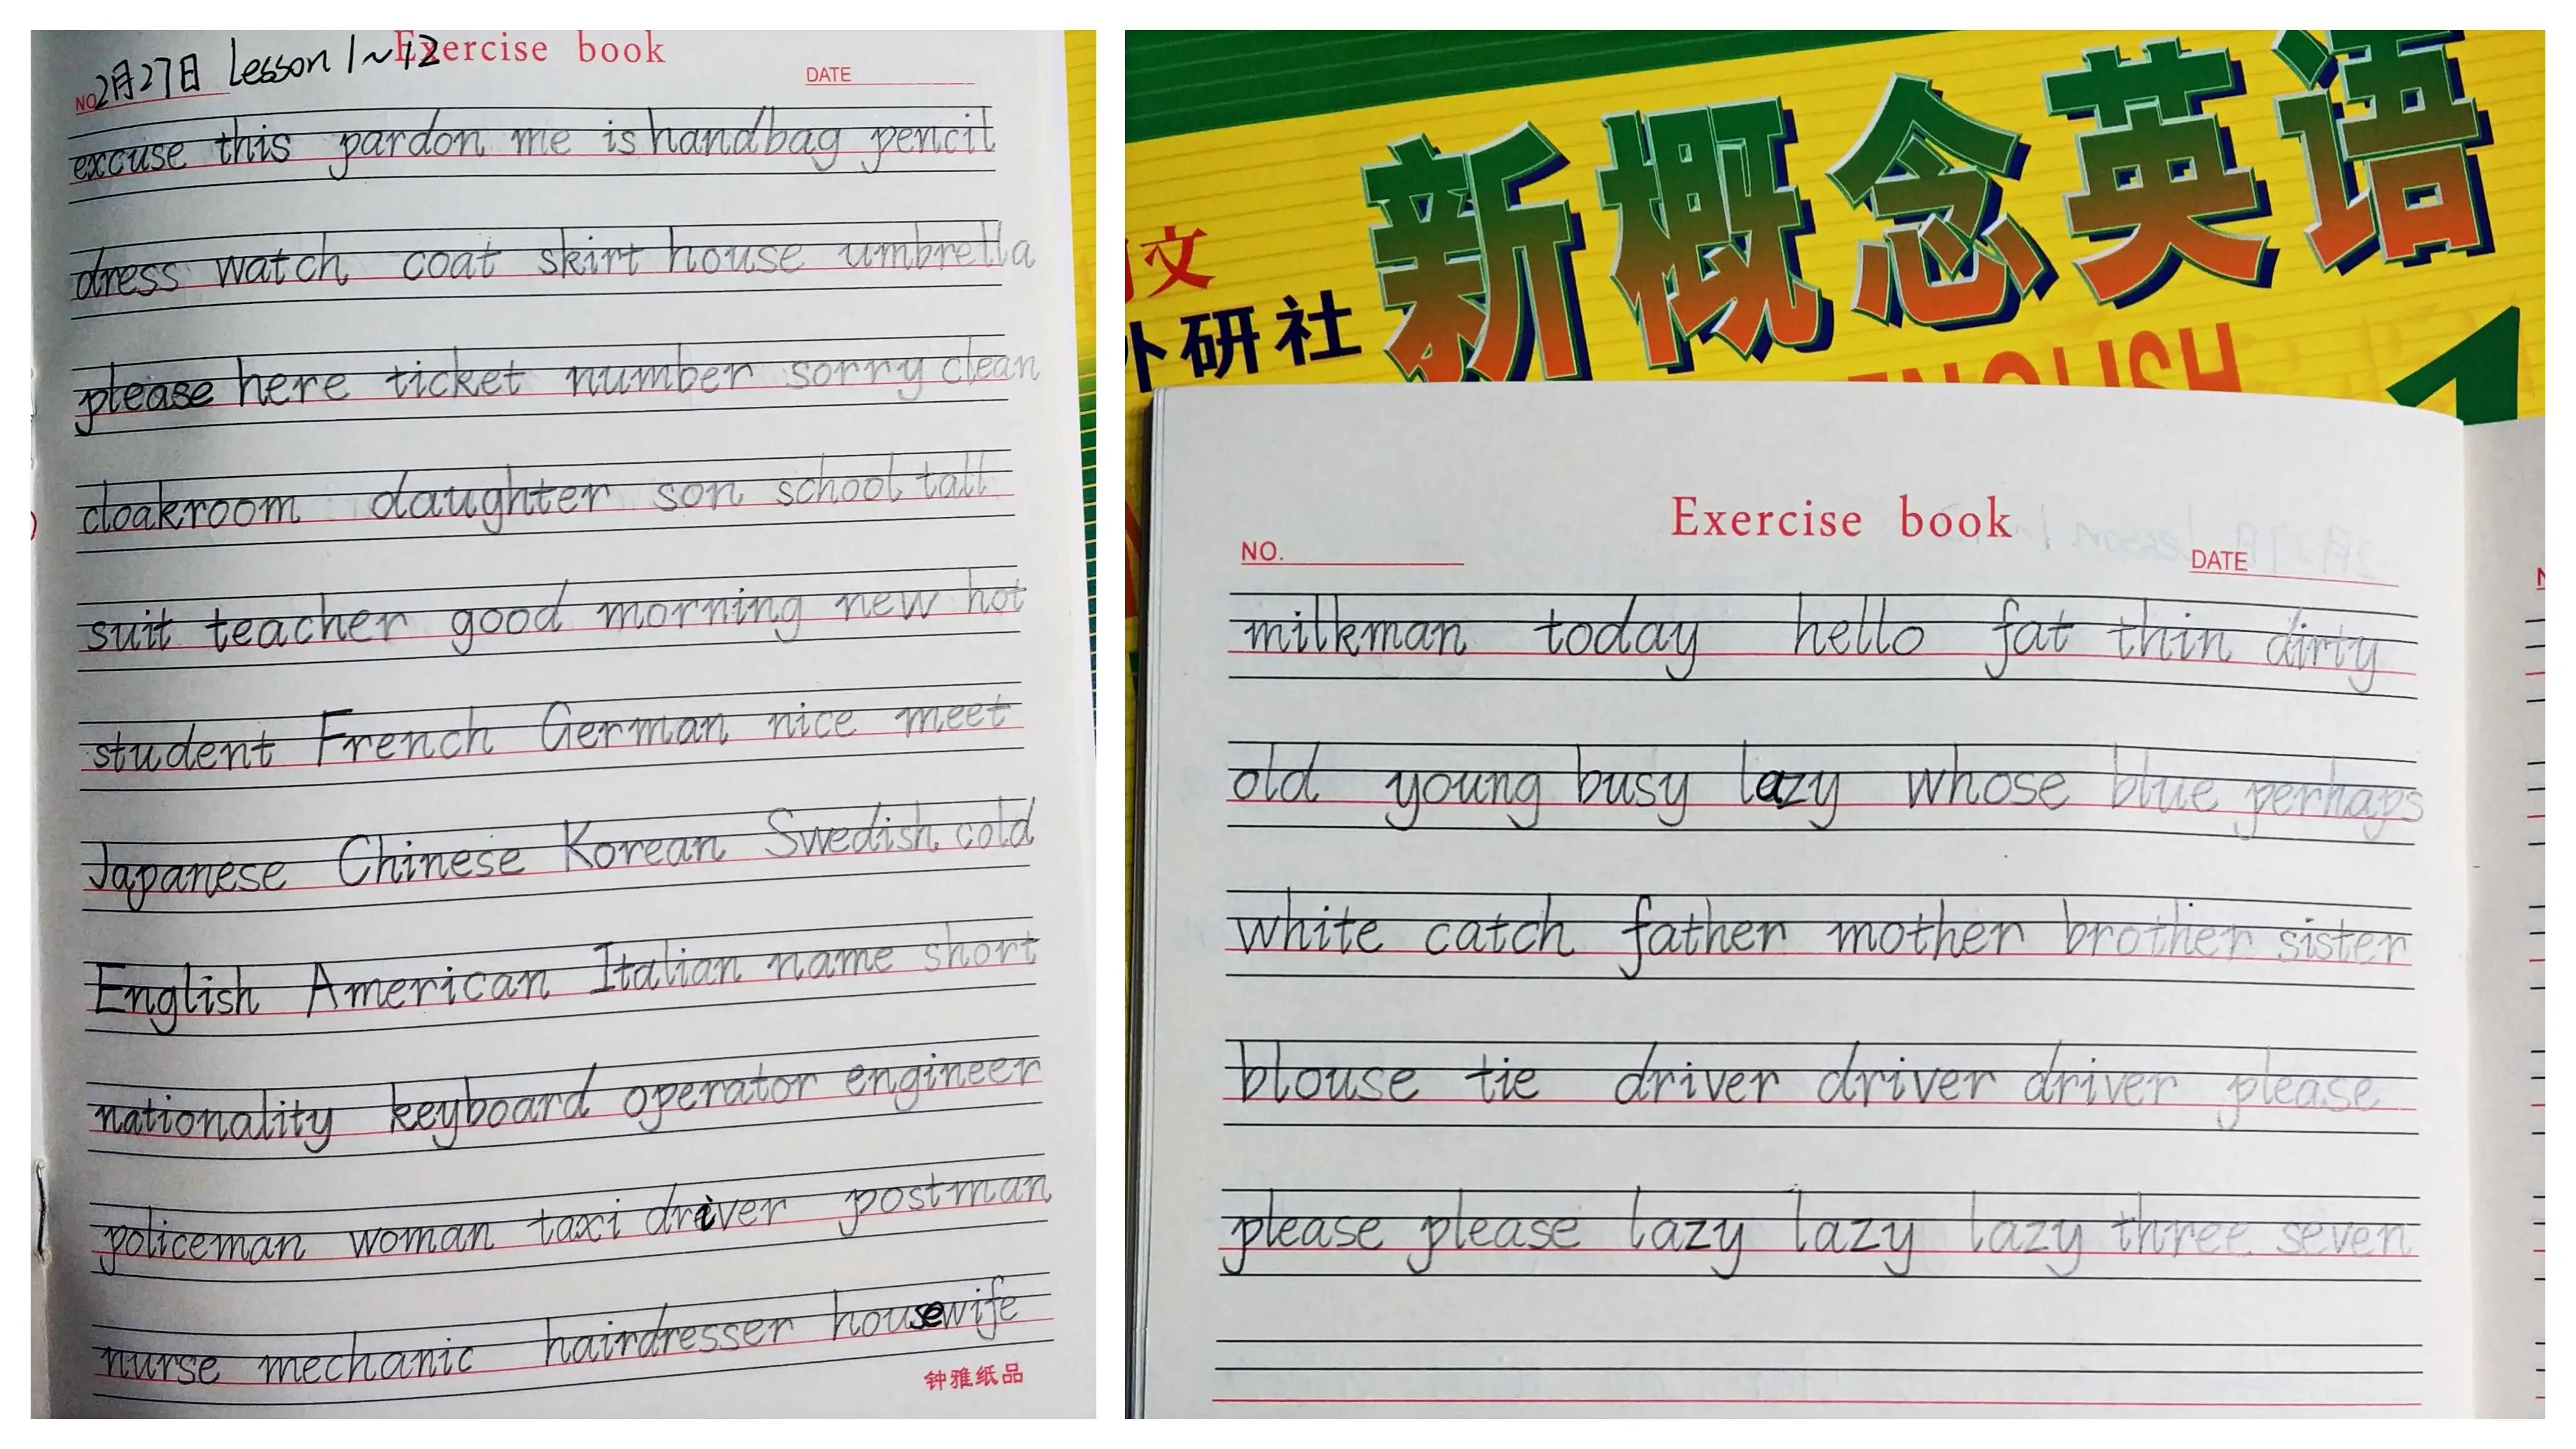 2月27日 Lesson 1~12
Exercise book
NO.
DATE
excuse this pardon me is handbag pencil
dress watch coat skirt house umbrella
please here ticket number sorry clean
cloakroom daughter son school tall
suit teacher good morning new hot
student French German nice meet
Japanese Chinese Korean Swedish cold
English American Italian name short
nationality keyboard operator engineer
policeman woman taxi driver postman
nurse mechanic hairdresser housewife
钟雅纸品
新概念英语
文
外研社
ENGLISH
1
Exercise book
NO.
DATE
milkman today hello fat thin dirty
old young busy lazy whose blue perhaps
white catch father mother brother sister
blouse tie driver driver driver please
please please lazy lazy lazy three seven